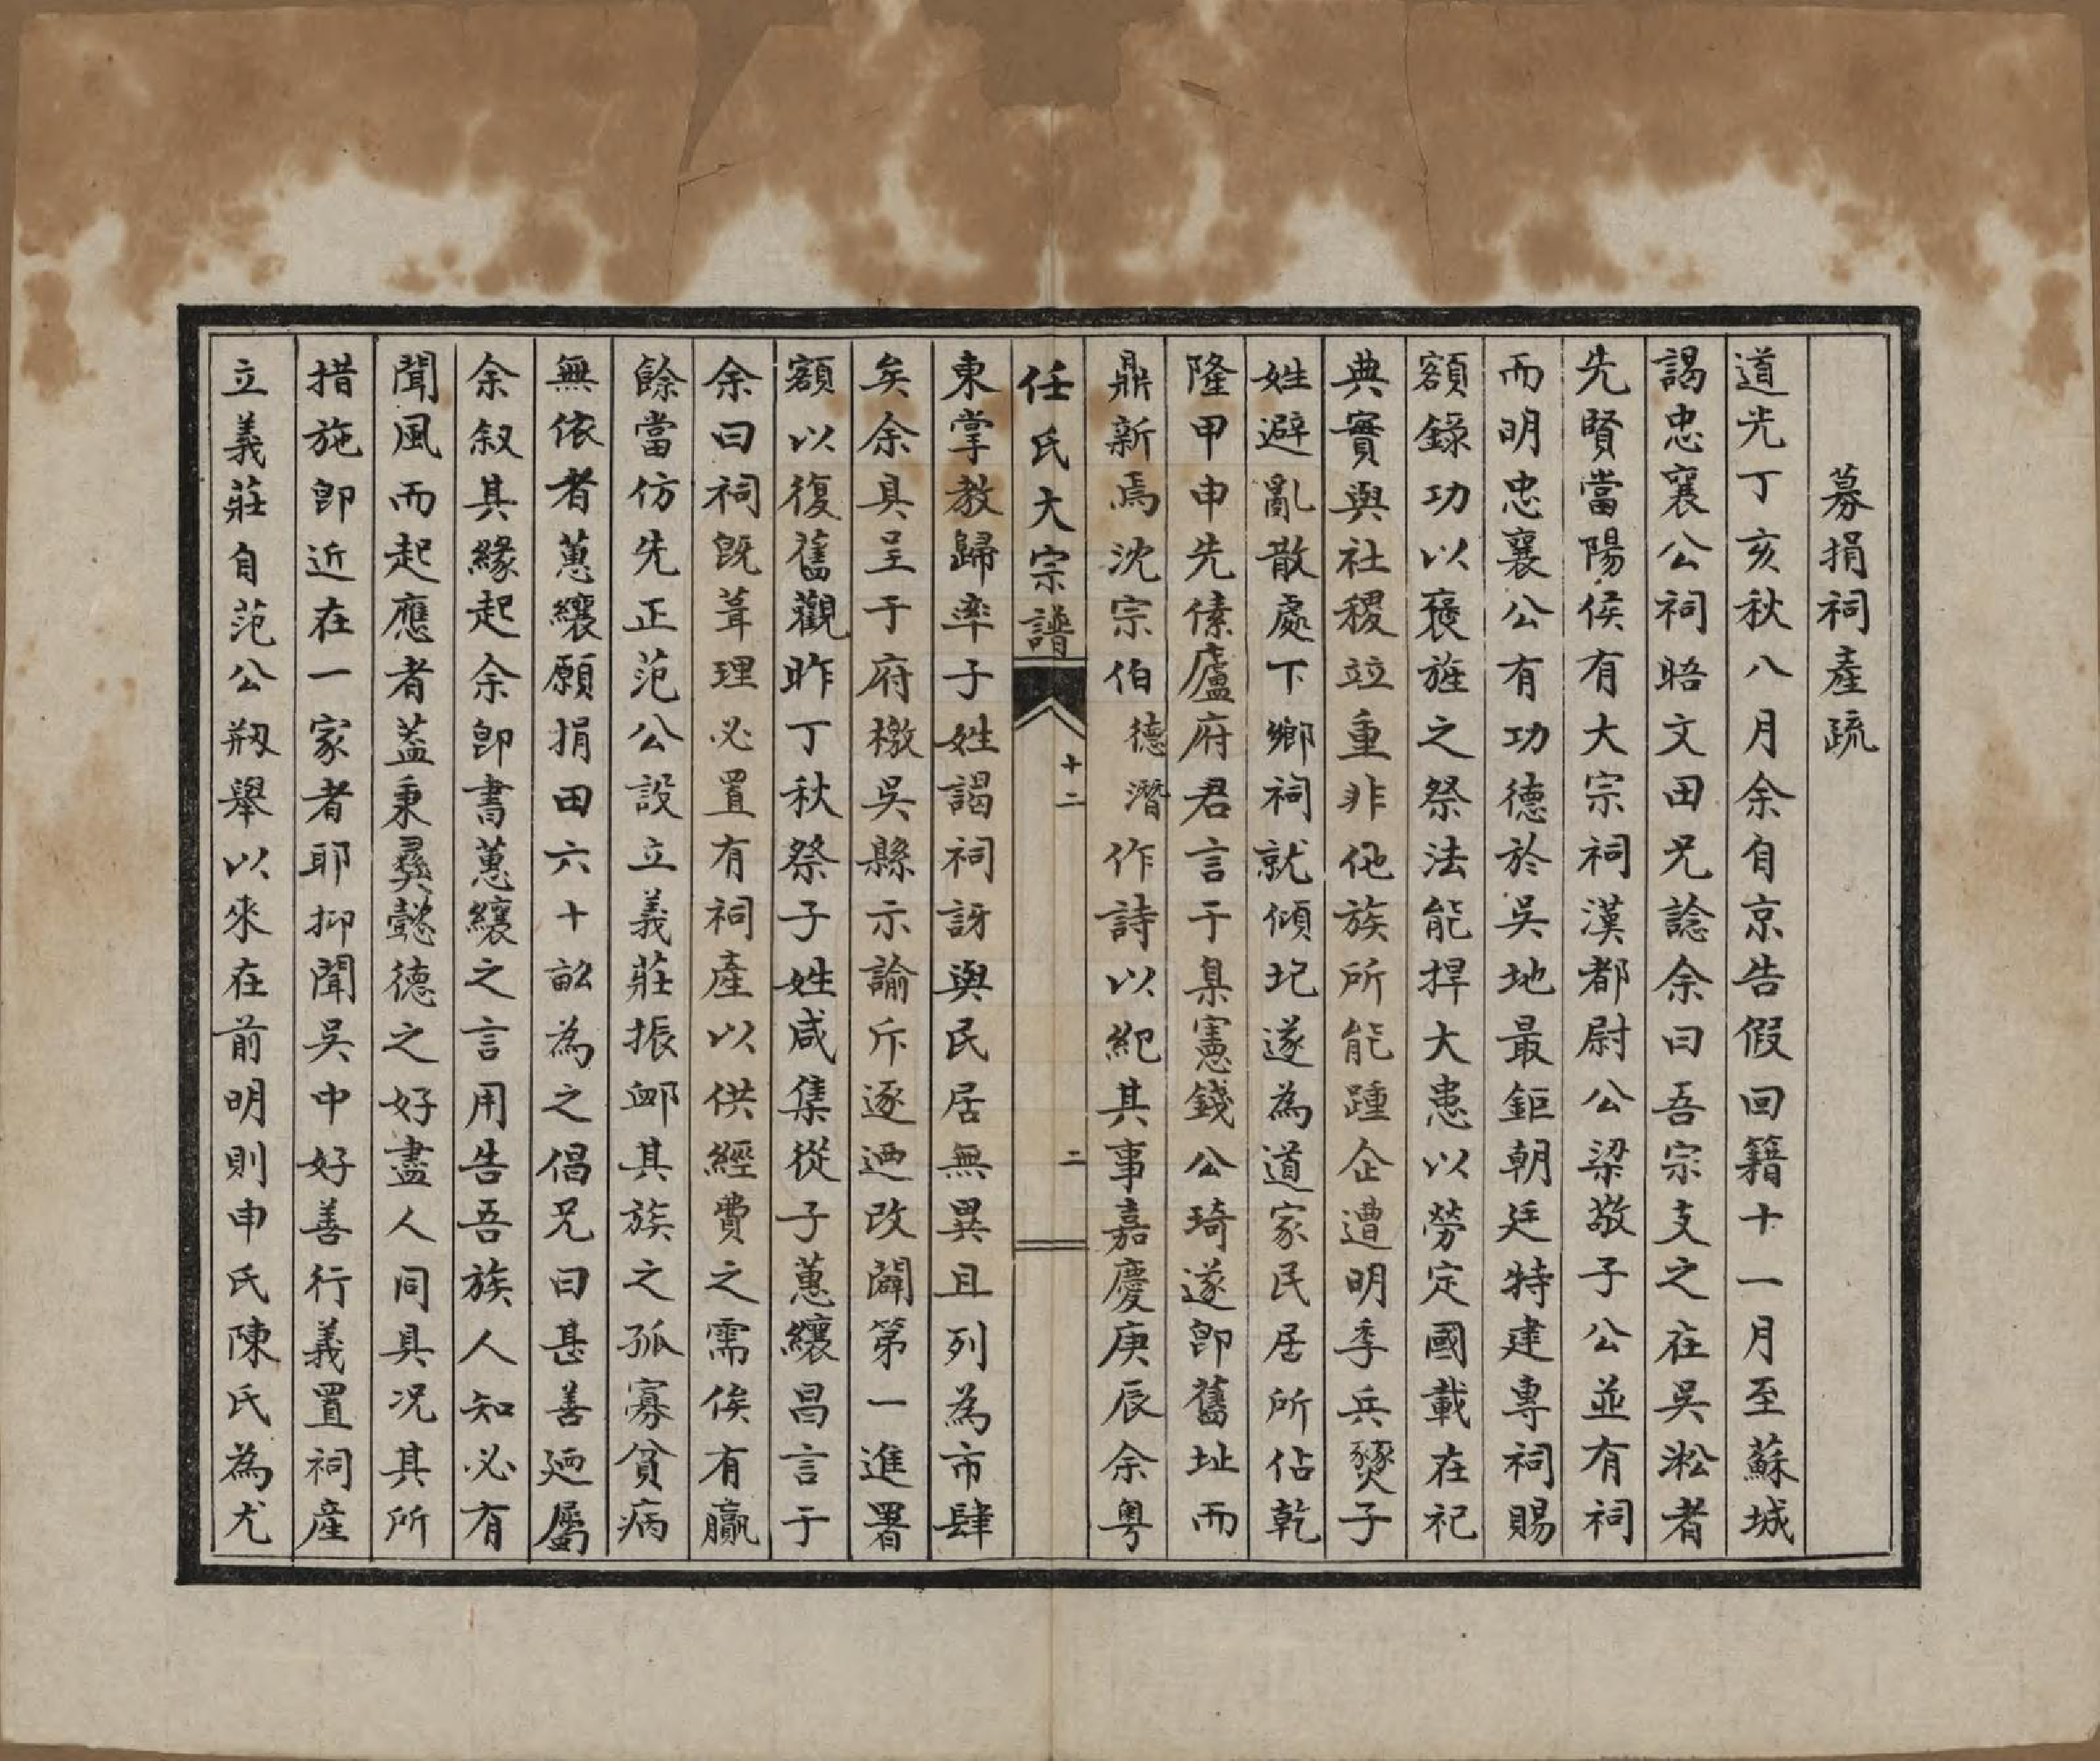 募捐祠產疏
道光丁亥秋八月余自京告假回籍十一月至蘇城
謁忠襄公祠晤文田兄諗余曰吾宗支之在吳淞者
先賢當陽侯有大宗祠漢都尉公梁敬子公並有祠
而明忠襄公有功德於吳地最鉅朝廷特建專祠賜
額錄功以襃旌之祭法能捍大患以勞定國載在祀
典實與社稷竝重非他族所能踵企遭明季兵燹子
姓避亂散處下鄉祠就傾圮遂為道家民居所佔乾
隆甲申先傃廬府君言于臬憲錢公琦遂卽舊址而
鼎新焉沈宗伯德潛作詩以紀其事嘉慶庚辰余粵
任氏大宗譜
十二
二
東掌教歸率子姓謁祠訝與民居無異且列為市肆
矣余具呈于府檄吳縣示諭斥逐迺改闢第一進署
額以復舊觀昨丁秋祭子姓咸集從子蕙纕昌言于
余曰祠旣葺理必置有祠產以供經費之需俟有贏
餘當仿先正范公設立義莊振卹其族之孤寡貧病
無依者蕙纕願捐田六十畝為之倡兄曰甚善迺屬
余叙其緣起余卽書蕙纕之言用告吾族人知必有
聞風而起應者蓋秉彝懿德之好盡人同具况其所
措施卽近在一家者耶抑聞吳中好善行義置祠產
立義莊自范公剏舉以來在前明則申氏陳氏為尤